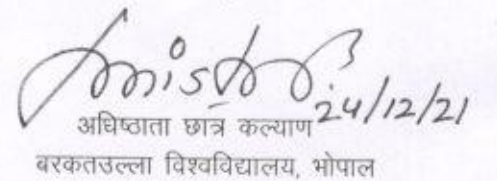 24/12/21
अधिष्ठाता छात्र कल्याण
बरकतउल्ला विश्वविद्यालय, भोपाल